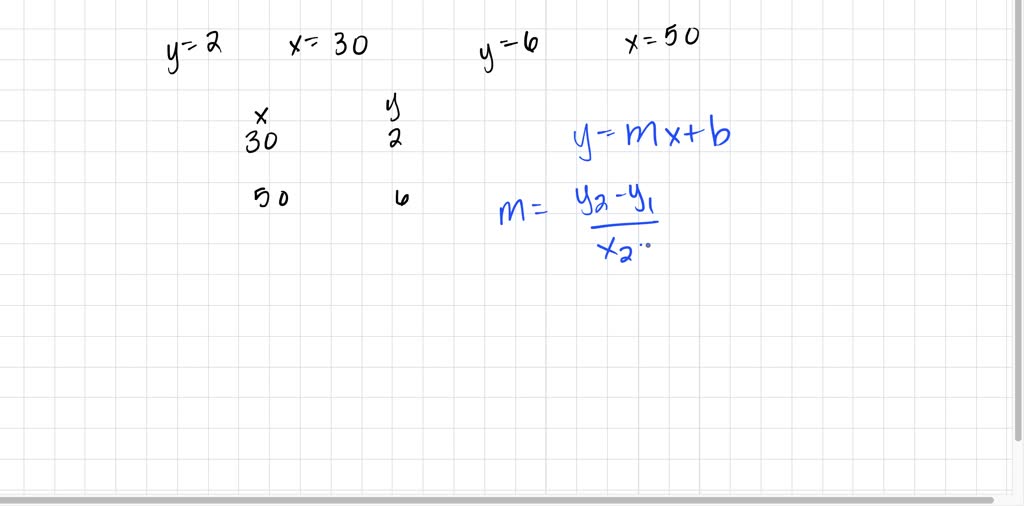 y=2 x=30 y=6 x=50
x y
30 2
50 6
y=mx+b
m= y2-y1
x2